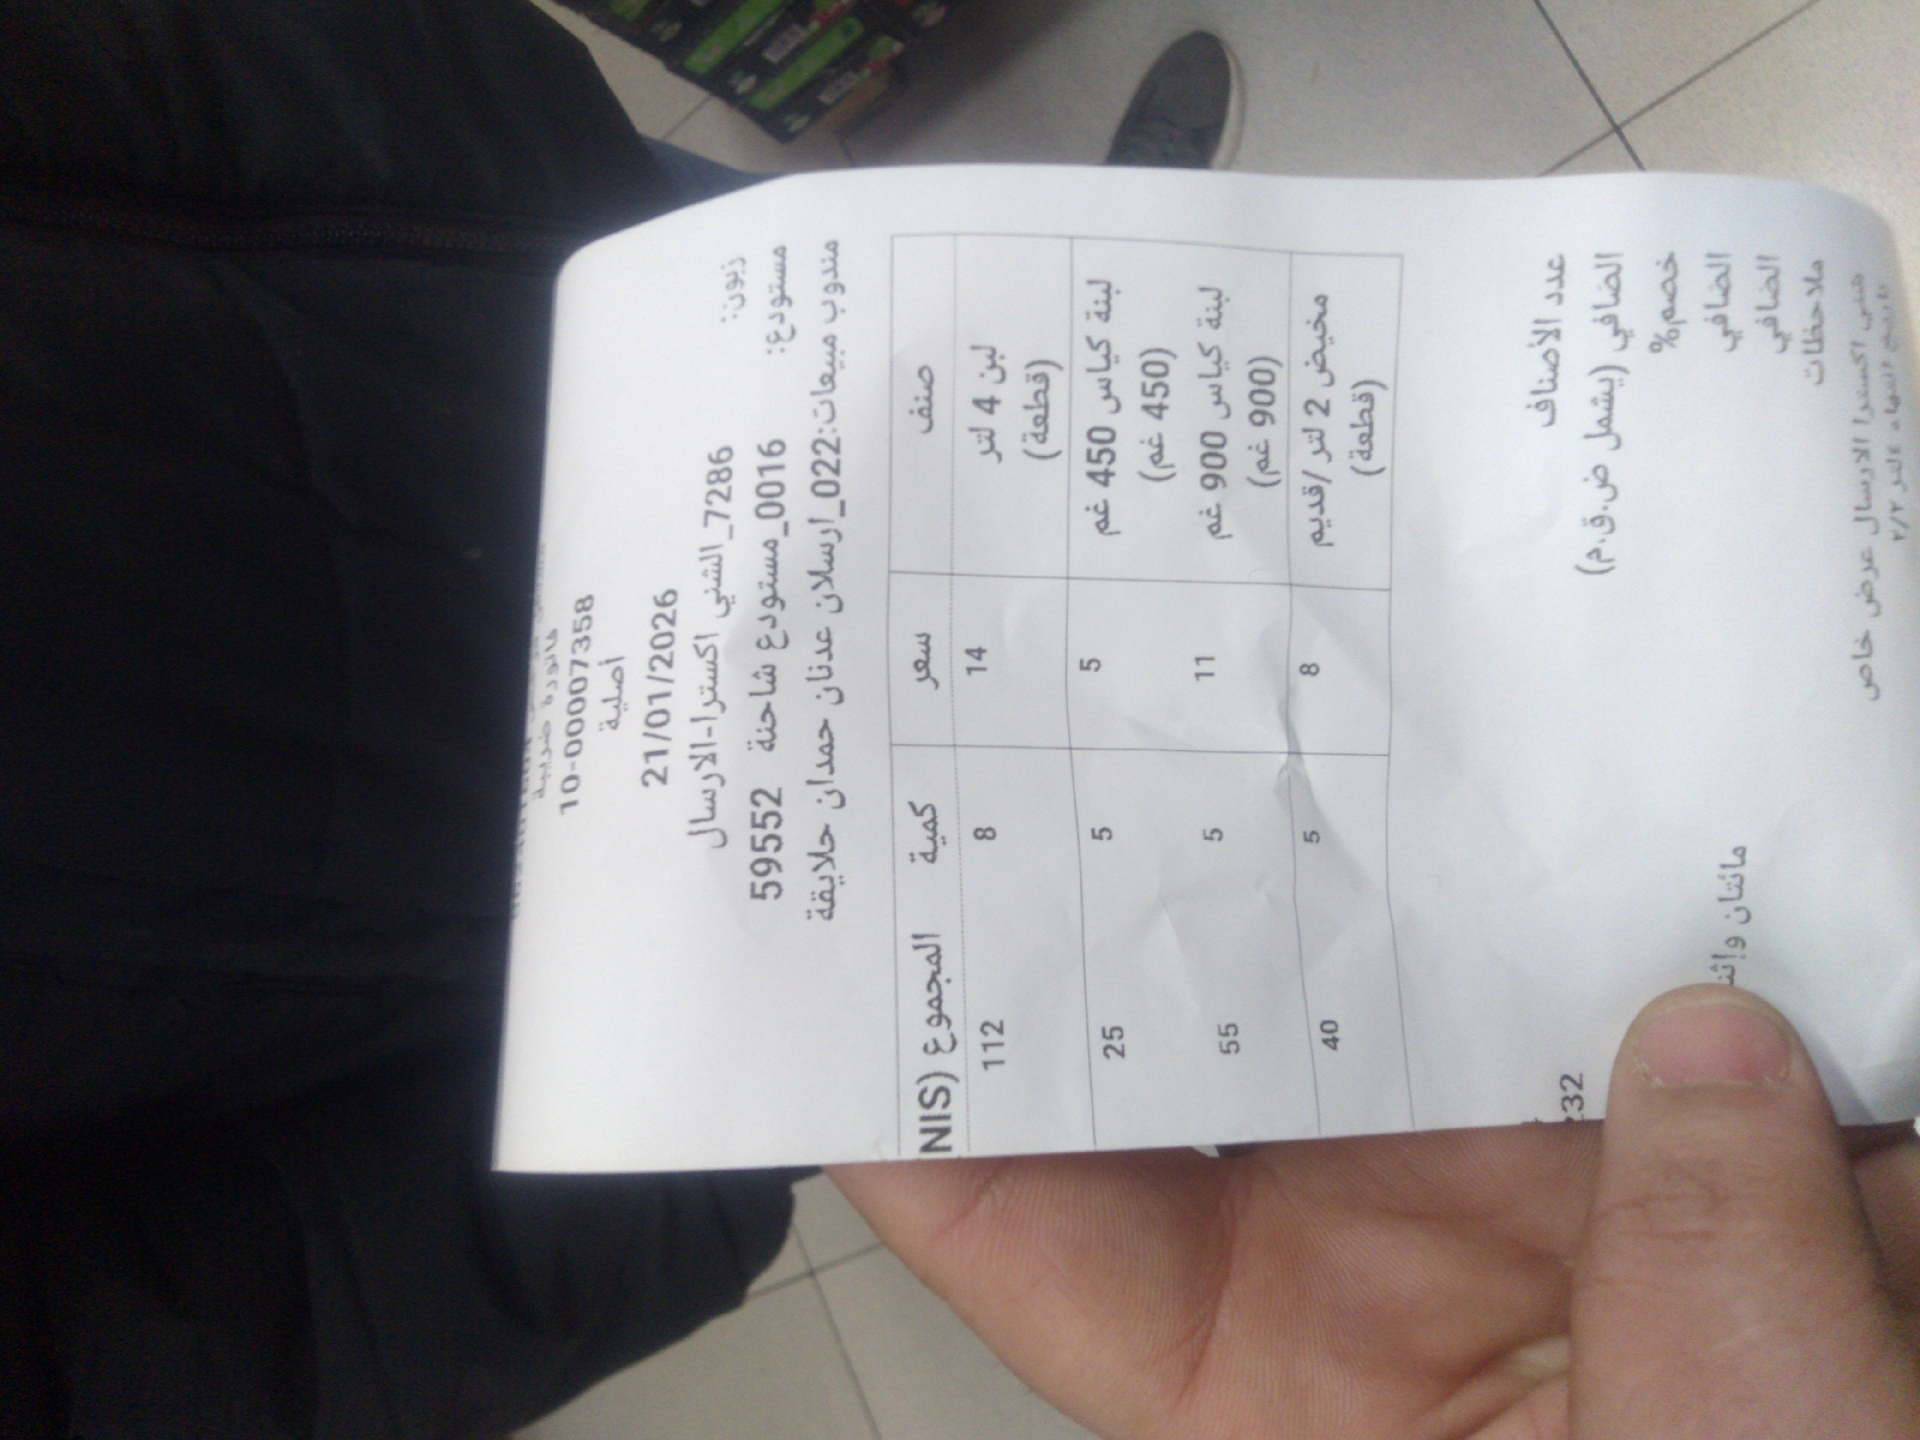 فاتورة ضريبية
10-00007358
أصلية
21/01/2026
زبون: 7286_الشني اكسترا-الارسال
مستودع: 0016_مستودع شاحنة 59552
مندوب مبيعات:022_ارسلان عدنان حمدان حلايقة
صنف سعر كمية المجموع (NIS
لبن 4 لتر 14 8 112
(قطعة)
لبنة كياس 450 غم 5 5 25
(450 غم)
لبنة كياس 900 غم 11 5 55
(900 غم)
مخيض 2 لتر /قديم 8 5 40
(قطعة)
عدد الأصناف
الصافي (يشمل ض.ق.م) 232
خصم%
الصافي
الصافي مائتان وإثن
ملاحظات
شني اكسترا الارسال عرض خاص